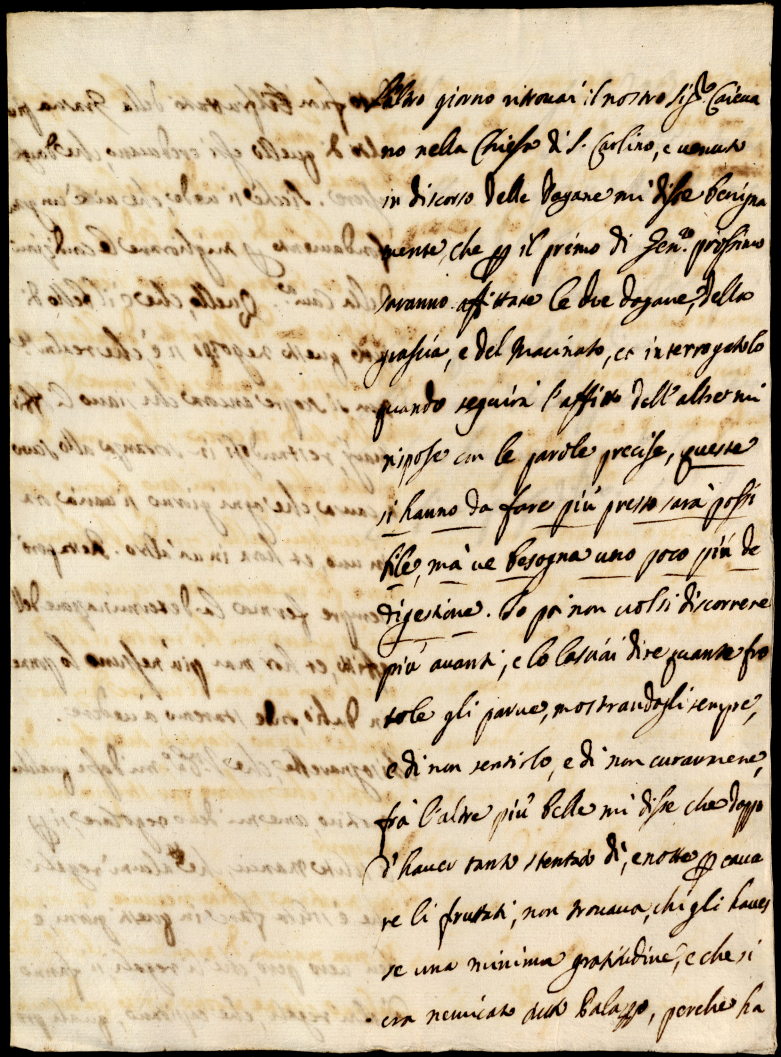 L'altro giorno ritrovai il nostro Sigr. Caieva
no nella Chiesa di S. Carlino, e venuti
in discorso delle Dogane mi disse benigna
mente, che p il primo di Gen.o prossimo
saranno affittate le due dogane, della
grascia, e del Macinato, et interrogatolo
quando seguirà l'affitto dell'altre mi
rispose con le parole precise, queste
si hanno da fare più presto sarà possi
bile, mà ve besogna uno poco più de
digestione. Io poi non volsi discorrere
più avanti, e lo lasciai dire quante fro
tole gli parve, mostrandogli sempre,
e di non sentirlo, e di non curarmene,
frà l'altre più belle mi disse che doppo
d'haver tanto stentato dì, e notte p cava
re li fruttati, non trovava, chi gli haves
se una minima gratitudine, e che si
era nemicato tutto Palazzo, perche ha